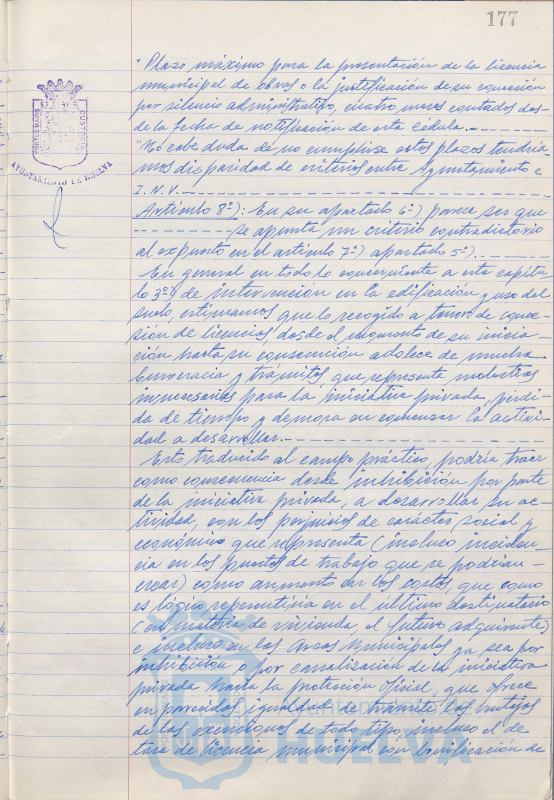 177
"Plazo máximo para la presentación de la licencia
municipal de obras o la justificación de su concesión
por silencio administrativo, cuatro meses contados des-
de la fecha de notificación de esta cédula.
"No cabe duda de no cumplirse estos plazos tendría-
mos disparidad de criterios entre Ayuntamiento e
I.N.V.
Artículo 8º): En su apartado 6º) parece ser que
se apunta un criterio contradictorio
al expuesto en el artículo 7º) apartado 5º).
En general en todo lo concerniente a este capítu-
lo 3º) de intervención en la edificación y uso del
suelo, estimamos que lo recogido a tenor de conce-
sión de licencias, desde el momento de su inicia-
ción hasta su consecución adolece de mucha
burocracia y trámites, que representa molestias
innecesarias para la iniciativa privada, pérdi-
da de tiempo y demora en comenzar la activi-
dad a desarrollar.
Esto traducido al campo práctico, podría traer
como consecuencia desde inhibición por parte
de la iniciativa privada, a desarrollar su ac-
tividad, con los perjuicios de carácter social y
económico que representa (incluso inciden-
cia en los puestos de trabajo que se podrían
crear) como aumento de los costes, que como
es lógico repercutiría en el último destinatario
(en materia de vivienda, el futuro adquirente)
e incluso en las arcas municipales ya sea por
inhibición o por canalización de la iniciativa
privada hacia la protección oficial, que ofrece
en parecidos igualdad de trámite las ventajas
de las exenciones de todo tipo, incluso el de
tasa de licencia municipal con bonificación de
AYUNTAMIENTO DE HUELVA
PORTUS MARIS ET TERRAE CUSTODIA
HUELVA